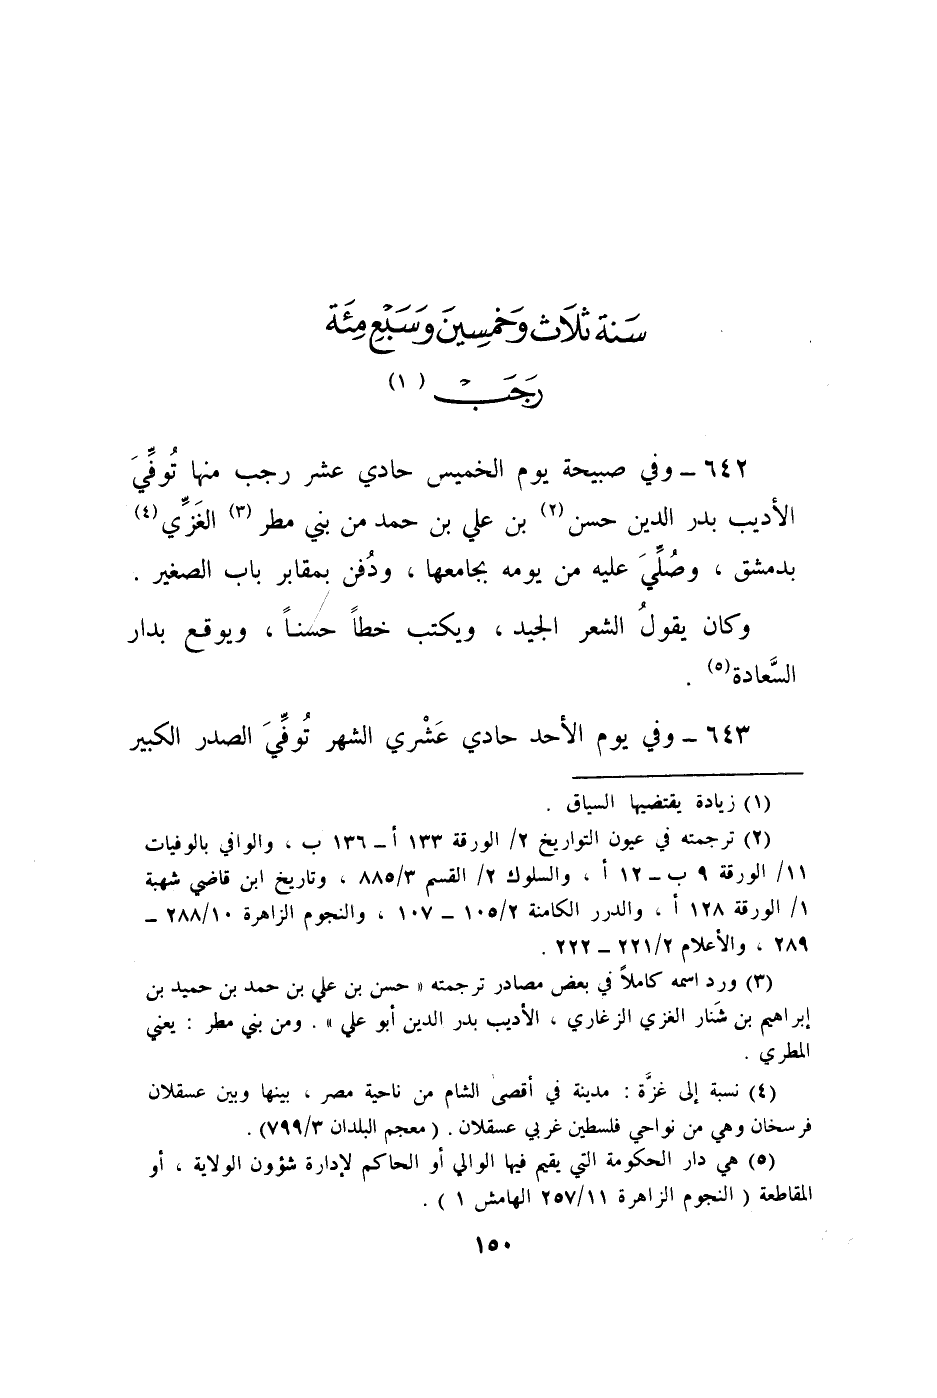 سَنة ثلَاث وَخمسِينَ وَسَبْعِ مِئَة
رَجَبْ (١)
٦٤٢ ــ وفي صبيحة يوم الخميس حادي عشر رجب منها تُوفِّيَ
الأديب بدر الدين حسن(٢) بن علي بن حمد من بني مطر(٣) الغَزِّي(٤)
بدمشق ، وصُلِّيَ عليه من يومه بجامعها ، ودُفن بمقابر باب الصغير .
وكان يقولُ الشعر الجيد ، ويكتب خطاً حسناً ، ويوقع بدار
السَّعادة(٥) .
٦٤٣ ــ وفي يوم الأحد حادي عَشْري الشهر تُوفِّيَ الصدر الكبير
(١) زيادة يقتضيها السياق .
(٢) ترجمته في عيون التواريخ ٢/ الورقة ١٣٣ أ ــ ١٣٦ ب ، والوافي بالوفيات
١١/ الورقة ٩ ب ــ ١٢ أ ، والسلوك ٢/ القسم ٨٨٥/٣ ، وتاريخ ابن قاضي شهبة
١/ الورقة ١٢٨ أ ، والدرر الكامنة ١٠٥/٢ ــ ١٠٧ ، والنجوم الزاهرة ٢٨٨/١٠ ــ
٢٨٩ ، والأعلام ٢٢١/٢ ــ ٢٢٢ .
(٣) ورد اسمه كاملاً في بعض مصادر ترجمته « حسن بن علي بن حمد بن حميد بن
إبراهيم بن شَنار الغزي الزغاري ، الأديب بدر الدين أبو علي » . ومن بني مطر : يعني
المطري .
(٤) نسبة إلى غزَّة : مدينة في أقصى الشام من ناحية مصر ، بينها وبين عسقلان
فرسخان وهي من نواحي فلسطين غربي عسقلان . ( معجم البلدان ٧٩٩/٣) .
(٥) هي دار الحكومة التي يقيم فيها الوالي أو الحاكم لإدارة شؤون الولاية ، أو
المقاطعة ( النجوم الزاهرة ٢٥٧/١١ الهامش ١ ) .
١٥٠